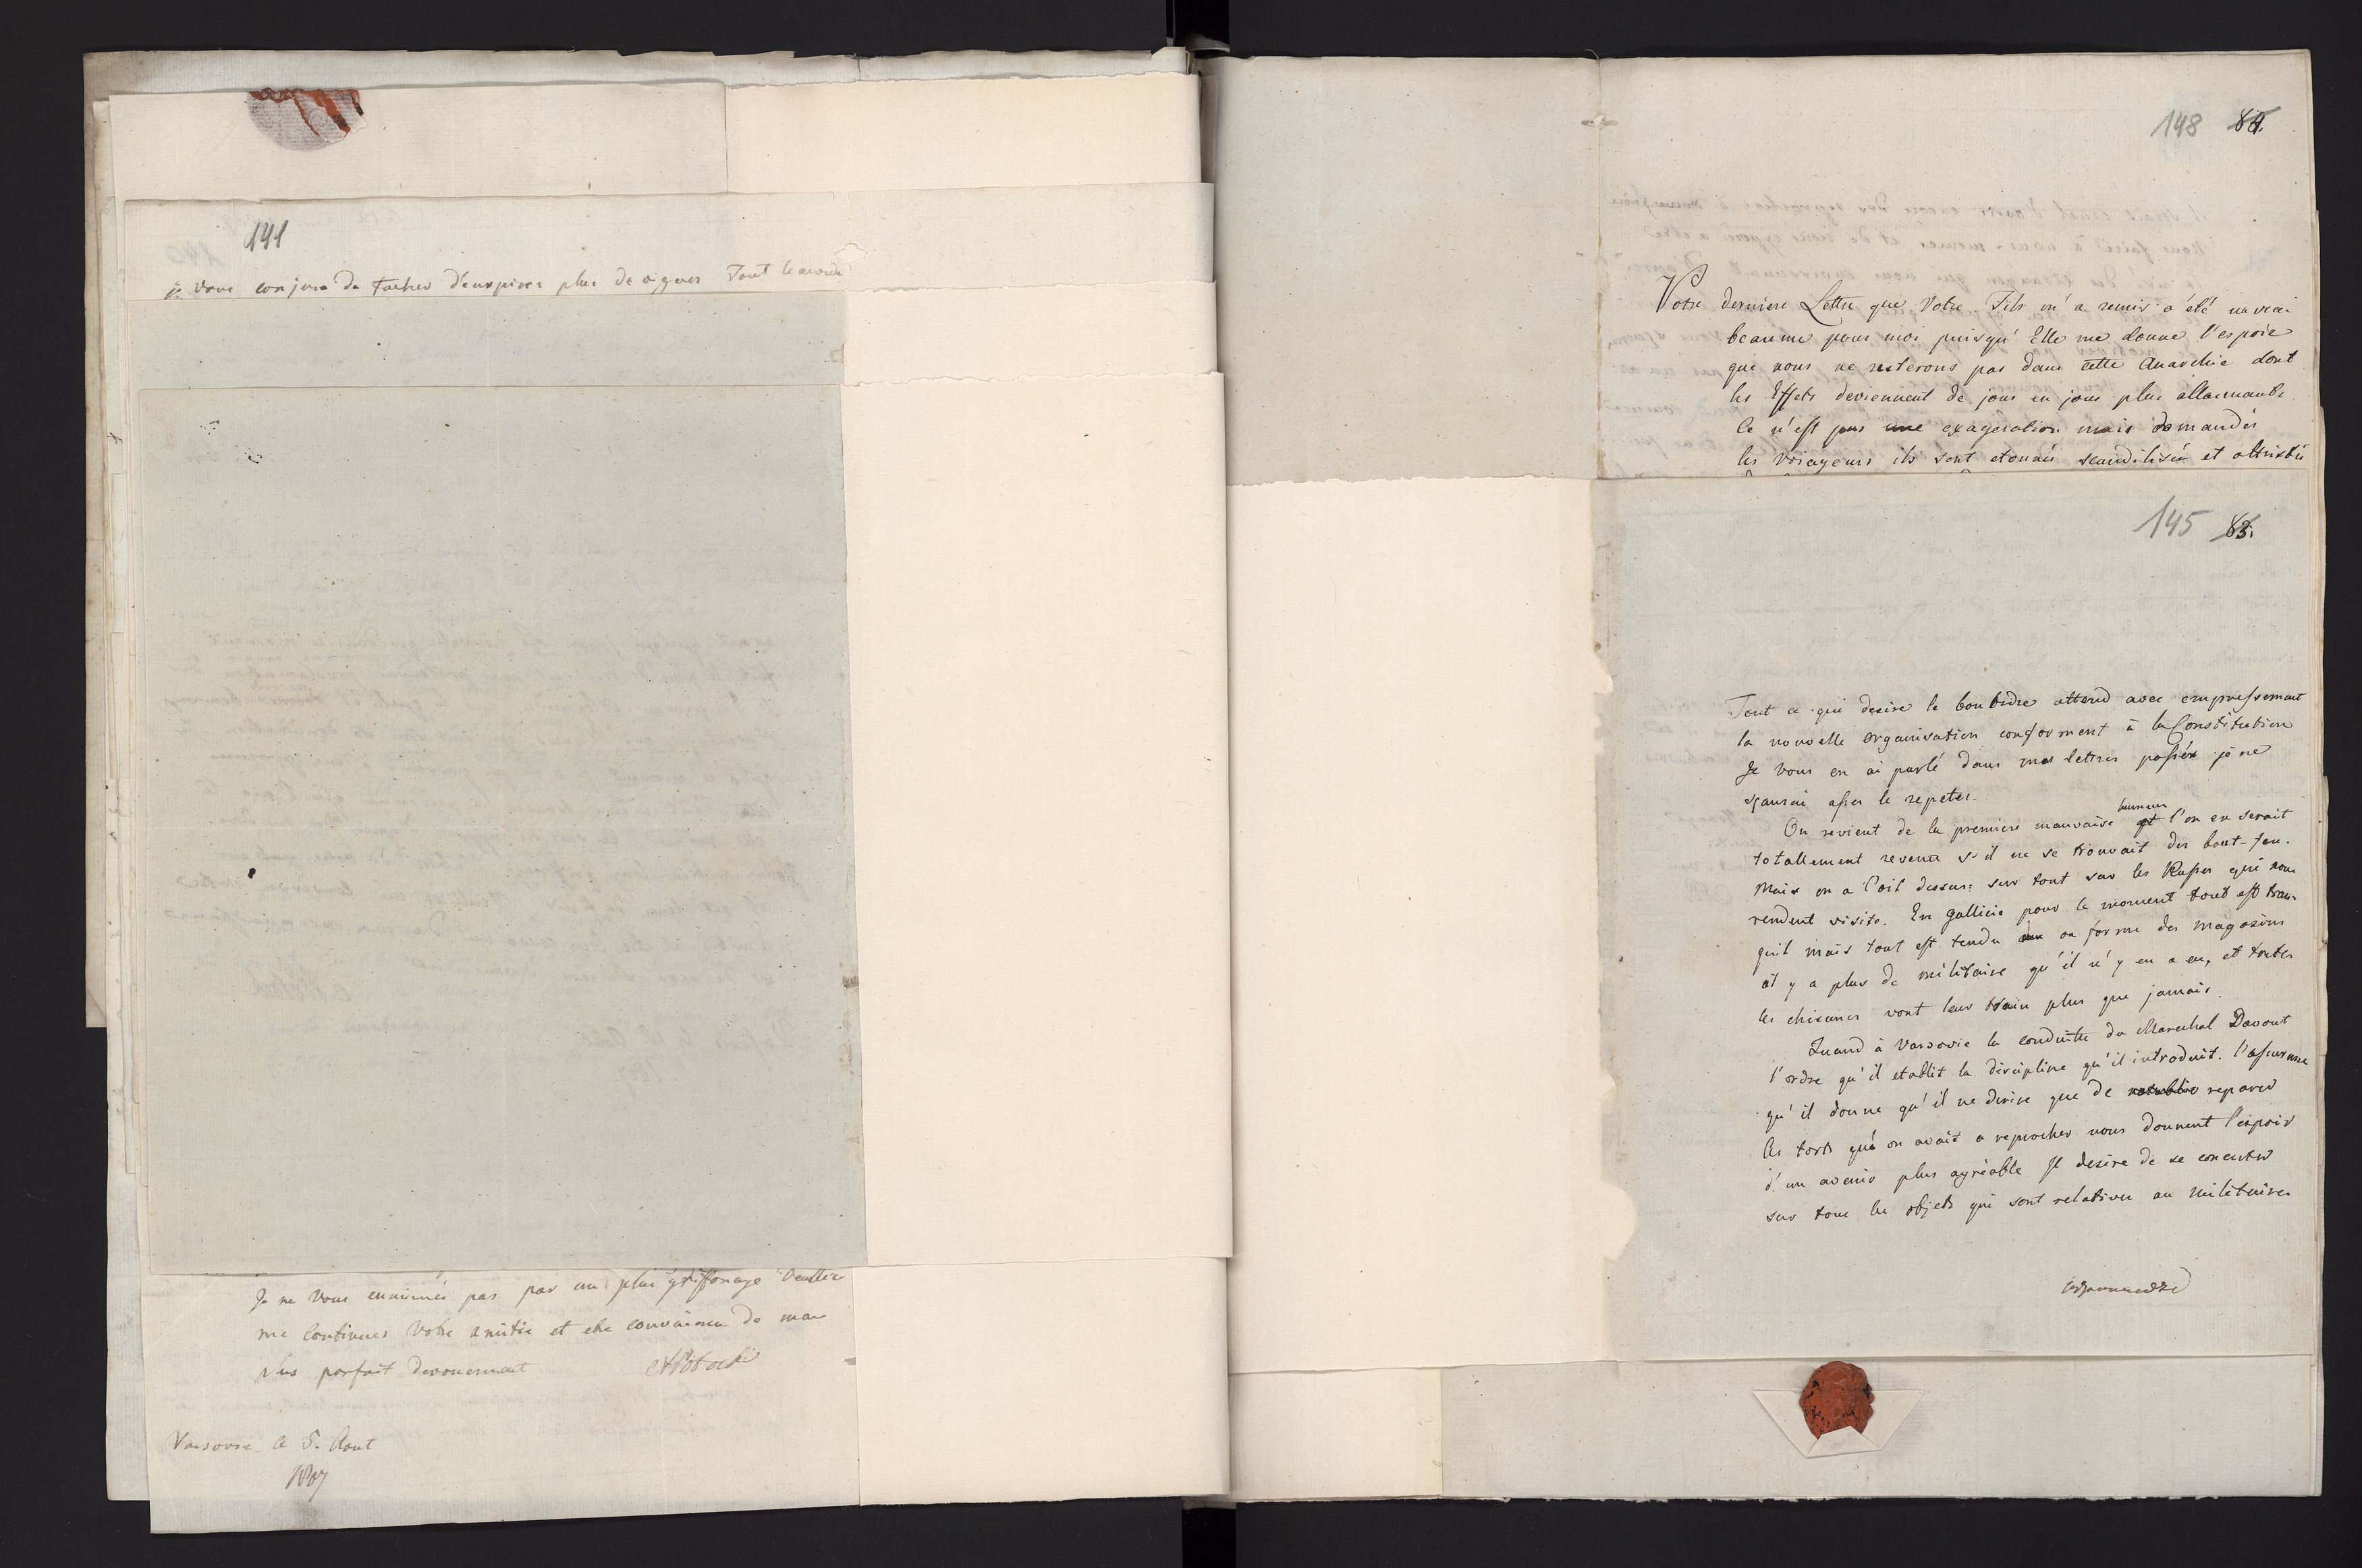 141
je vous conjure de tacher d'enspirer plus de viguer Tout le monde
Je ne vous ennuiès pas par un plus griffonage Veullie
me continuer Votre amitie et etre convaincu de mon
plus parfait devouement
Varsovie le 5. Aout
1807
148 84.
Votre derniere Lettre que Votre Fils m'a remis a été un vrai
beaume pour moi puisqu' Elle me donne l'espoir
que nous ne resterons pas dans cette Anarchie dont
les Effets deviennent de jour en jour plus allarmants
Ce n'est pas une exageration mais demandés
les Voiageurs ils sont etonnés scandilisés et attristés
145 83.
Tout ce qui desire le bon ordre attend avec empressement
la nouvelle organisation conforment à la Constitution
Je vous en ai parlé dans mes lettres passés je ne
sçaurai asses le repeter.
On revient de la premiere mauvaise humeur et l'on en serait
totallement revenu s'il ne se trouvait des bout-feu.
Mais on a l'oeil dessus: sur tout sur les Russes qui nous
rendent visite. En Gallicie pour le moment tout est tran-
quil mais tout est tendu on forme des magasins
il y a plus de militaire qu'il n'y en a eu, et toutes
les chicanes vont leur train plus que jamais.
Quand à Varsovie la conduitte du Marechal Davout
l'ordre qu'il etablit la discipline qu'il introduit. l'assurance
qu'il donne qu'il ne desire que de retablir reparer
les torts qu'on avait a reprocher nous donnent l'espoir
d'un avenir plus agréable Il desire de se concerter
sur tous les objets qui sont relatives au militaires